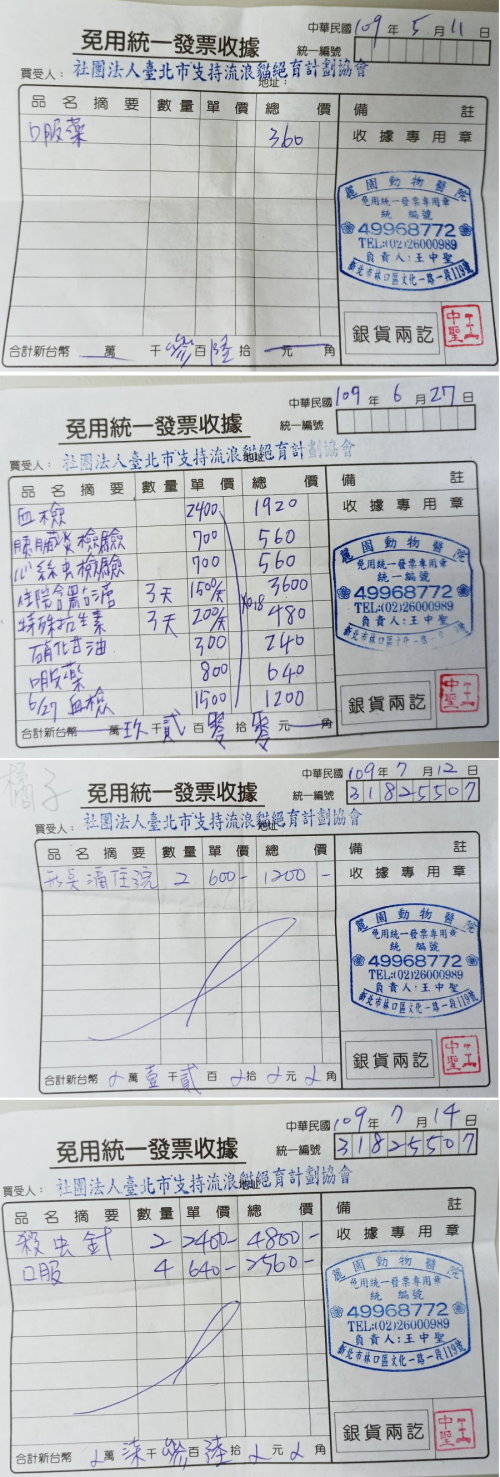 中華民國109年5月11日
免用統一發票收據
統一編號
買受人：社團法人臺北市支持流浪貓絕育計劃協會
地址：
品名摘要 數量 單價 總價 備註
口服藥 360
收據專用章
麗園動物醫院
免用統一發票專用章
統一編號
49968772
TEL:(02)26000989
負責人:王中聖
新北市林口區文化一路一段119號
銀貨兩訖
王中聖
合計新台幣 萬 千 參百 陸拾 元 角
中華民國109年6月27日
免用統一發票收據
統一編號
買受人：社團法人臺北市支持流浪貓絕育計劃協會
地址
品名摘要 數量 單價 總價 備註
血檢 2400 1920
胰臟炎檢驗 700 560
心絲虫檢驗 700 560
住院含點滴 3天 1500/天 3600
特殊抗生素 3天 200/天 480
硝化甘油 300 240
口服藥 800 640
6/27 血檢 1500 1200
x0.8
收據專用章
麗園動物醫院
免用統一發票專用章
統一編號
49968772
TEL:(02)26000989
負責人:王中聖
新北市林口區
銀貨兩訖
王中聖
合計新台幣 萬 玖千 貳百 零拾 零元 角
橘子
中華民國109年7月12日
免用統一發票收據
統一編號 31825507
買受人：社團法人臺北市支持流浪貓絕育計劃協會
地址
品名摘要 數量 單價 總價 備註
住院 2 600- 1200-
收據專用章
麗園動物醫院
免用統一發票專用章
統編號
49968772
TEL:(02)26000989
負責人:王中聖
新北市林口區文化一路一段119號
銀貨兩訖
王中聖
合計新台幣 萬 壹千 貳百 拾 元 角
中華民國109年7月14日
免用統一發票收據
統一編號 31825507
買受人：社團法人臺北市支持流浪貓絕育計劃協會
地址
品名摘要 數量 單價 總價 備註
殺虫針 2 2400- 4800-
口服 4 640- 2560-
收據專用章
麗園動物醫院
免用統一發票專用章
統編號
49968772
TEL:(02)26000989
負責人:王中聖
新北市林口區文化一路一段119號
銀貨兩訖
王中聖
合計新台幣 萬 柒千 參百 陸拾 元 角